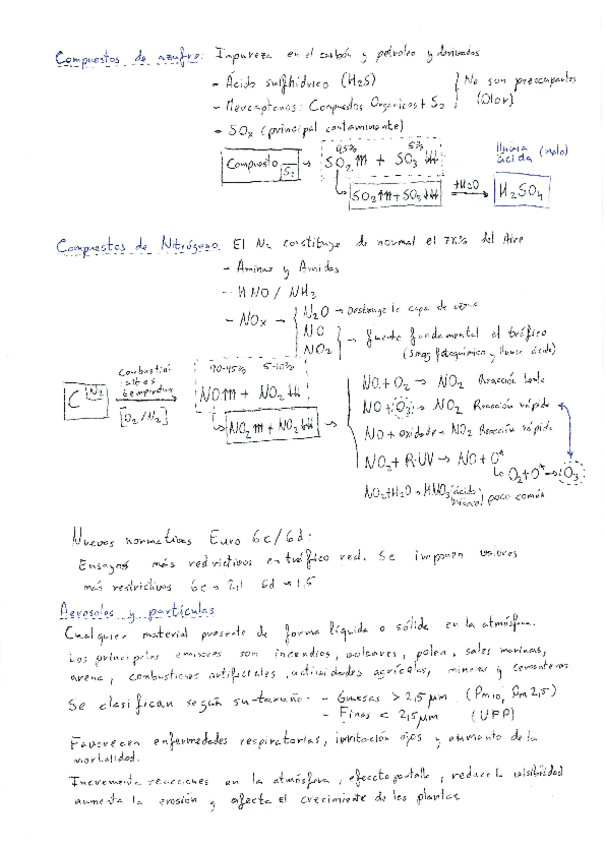 Compuestos de azufre: Impureza en el carbón y petroleo y derivados
- Ácido sulfhídrico (H₂S)
- Mercaptanos: Compuestos Organicos + S₂
} No son preocupantes (Olor)
- SOx (principal contaminante)
95% 5%
Compuesto S₂ → SO₂ ↑↑↑ + SO₃ ↓↓↓
SO₂ ↑↑ + SO₃ ↓↓↓ +H₂O → H₂SO₄
lluvia ácida (malo)
Compuestos de Nitrógeno. El N₂ constituye de normal el 78% del Aire
- Aminas y Amidas
- HNO / NH₃
- NOx → N₂O → Destruye la capa de ozono
NO
NO₂
} → fuente fundamental el tráfico
(Smog fotoquímico y lluvia ácida)
C N₂ Combustión altas temperaturas [O₂/N₂] →
90-95% 5-10%
NO ↑↑↑ + NO₂ ↓↓↓
NO₂ ↑↑↑ + NO₂ ↓↓↓ →
NO + O₂ → NO₂ Reacción lenta
NO + O₃ → NO₂ Reacción rápida
NO + oxidante → NO₂ Reacción rápida
NO₂ + R·UV → NO + O*
O₂ + O* → O₃
NO₂ + H₂O → HNO₃ (ácido) poco común
Nuevas normativas Euro 6c/6d:
Ensayos más restrictivos en tráfico real. Se imponen valores
más restrictivos 6c → 2,1 6d → 1,5
Aerosoles y partículas
Cualquier material presente de forma líquida o sólida en la atmósfera.
Los principales emisores son incendios, volcanes, polen, sales marinas,
arena, combustiones artificiales, actividades agrícolas, mineras y cementeras
Se clasifican según su tamaño: - Gruesas > 2,5 μm (Pm10, Pm 2,5)
- Finas < 2,5 μm (UFP)
Favorecen enfermedades respiratorias, irritación ojos y aumento de la
mortalidad.
Incrementa reacciones en la atmósfera, efecto pantalla, reduce la visibilidad
aumenta la erosión y afecta el crecimiento de las plantas